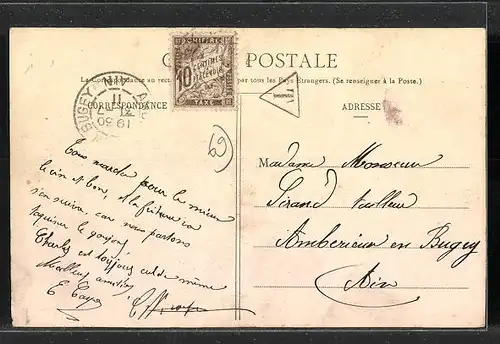 POSTALE
La Correspondance au rect. par tous les Pays Étrangers. (Se renseigner à la Poste.)
CORRESPONDANCE
ADRESSE
A CHIFFRE
10 CENTIMES
À PERCEVOIR
TAXE
T
BUGEY
19 30
11
69
Tous marche pour le mieux
le vin est bon, et la friture va
s'en suivre, car nous partons
taquiner le goujon
Charles est toujours lui-même
Meilleures amitiés
E
Madame Monsieur
Girand tailleur
Amberieux en Bugey
Ain